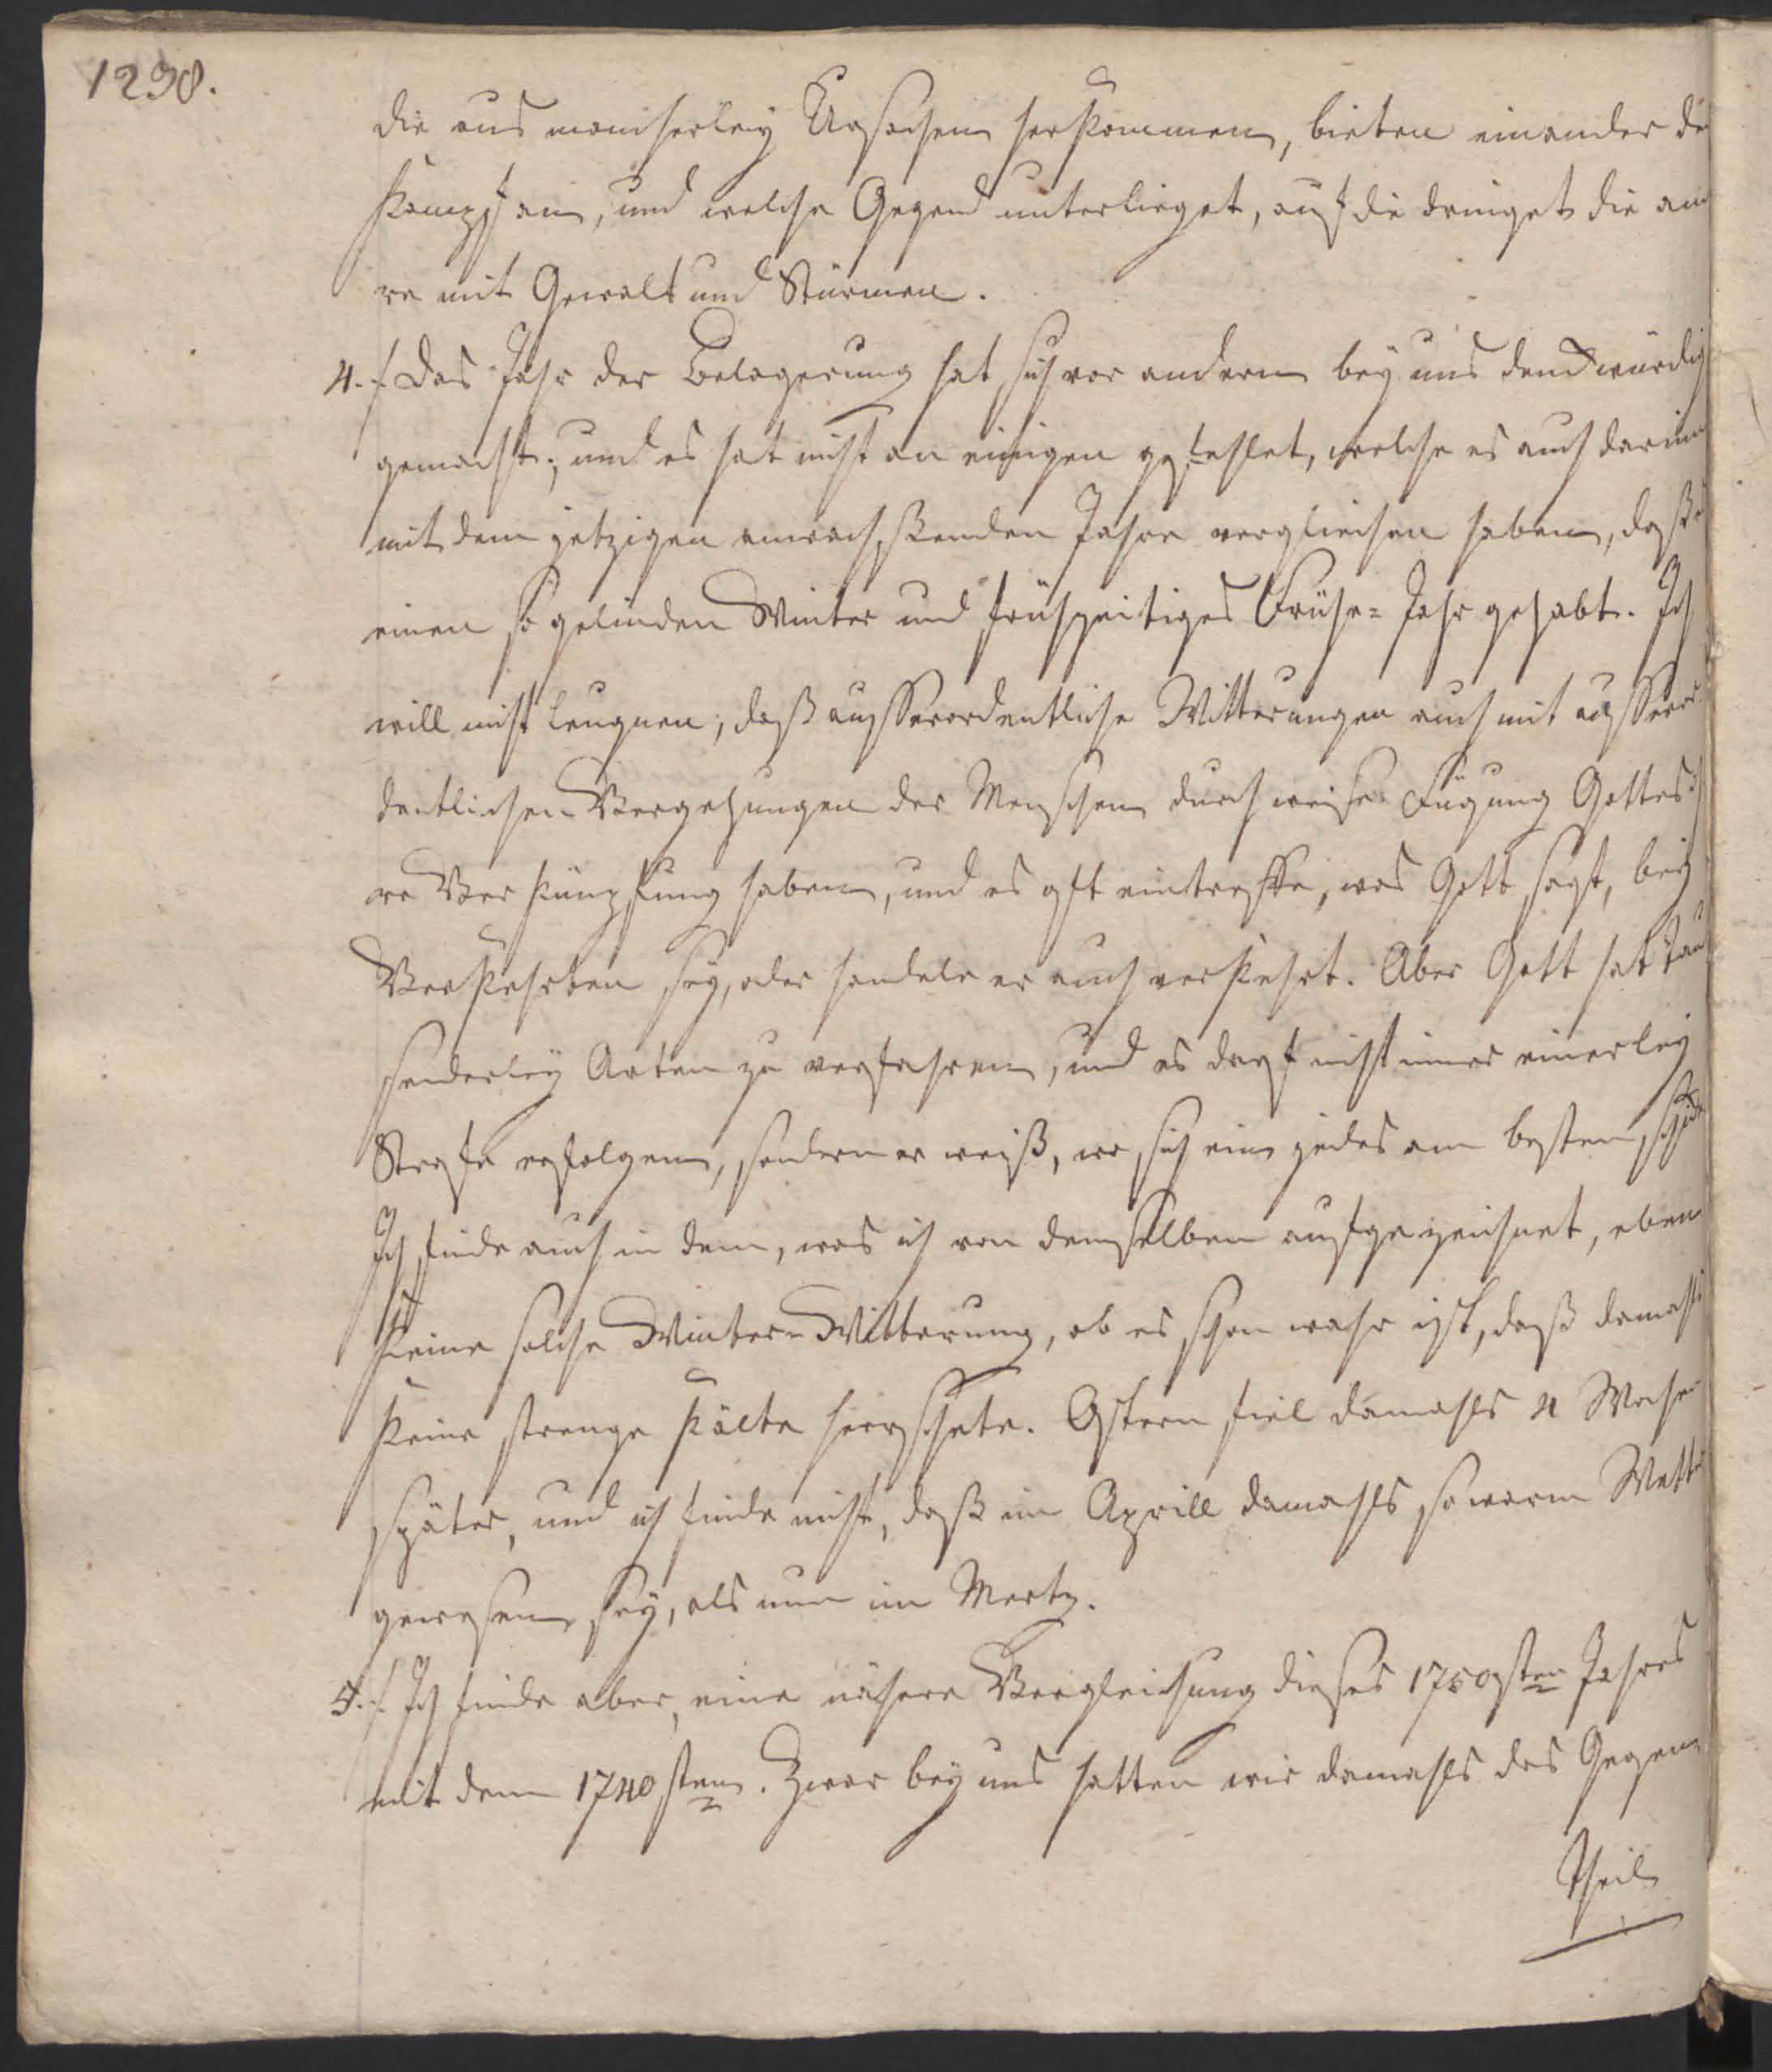 1298.
die aus mancherley Ursachen herkommen, bieten einander de
Kampf an, und welche Gegend unterlieget, auf die dringet die an
re mit Gewalt und Stürmen.
4. Das Jahr der Belagerung hat sich vor andern bey uns denckwürdig
gemacht; und es hat nicht an einigen gefehlet, welche es auch darinn
mit dem jetzigen verglichen haben, daß
einen so gelinden Winter und frühzeitiges Früh-Jahr gehabt. Ich
will nicht leugnen, daß ausserordentliche Witterungen auch mit ausseror
dentlichen Vergehungen der Menschen durch weise Fügung Gottes ih
re Verknüpfung haben, und es oft eintreffe, was Gott sagt, bey
Verkehrten sey, oder handele er auch verkehrt. Aber Gott hat tau
senderley Arten zu verfahren, und es darf nicht immer einerley
Strafe erfolgen, sondern er weiß, wo sich ein jedes am besten schick
Ich finde auch in dem, was ich von demselben aufgezeichnet, eben
keine solche Winter-Witterung, ob es schon wahr ist, daß damahls
keine strenge Kälte herrschete. Ostern fiel damahls 4 Wochen
später, und ich finde nicht, daß im Aprill damahls so warm Wetter
gewesen sey, als nun im Mertz.
5. Ich finde aber, eine nähere Vergleichung dieses 1750sten Jahres
mit dem 1740sten. Zwar bey uns hatten wir damahls das Gegen
Theil